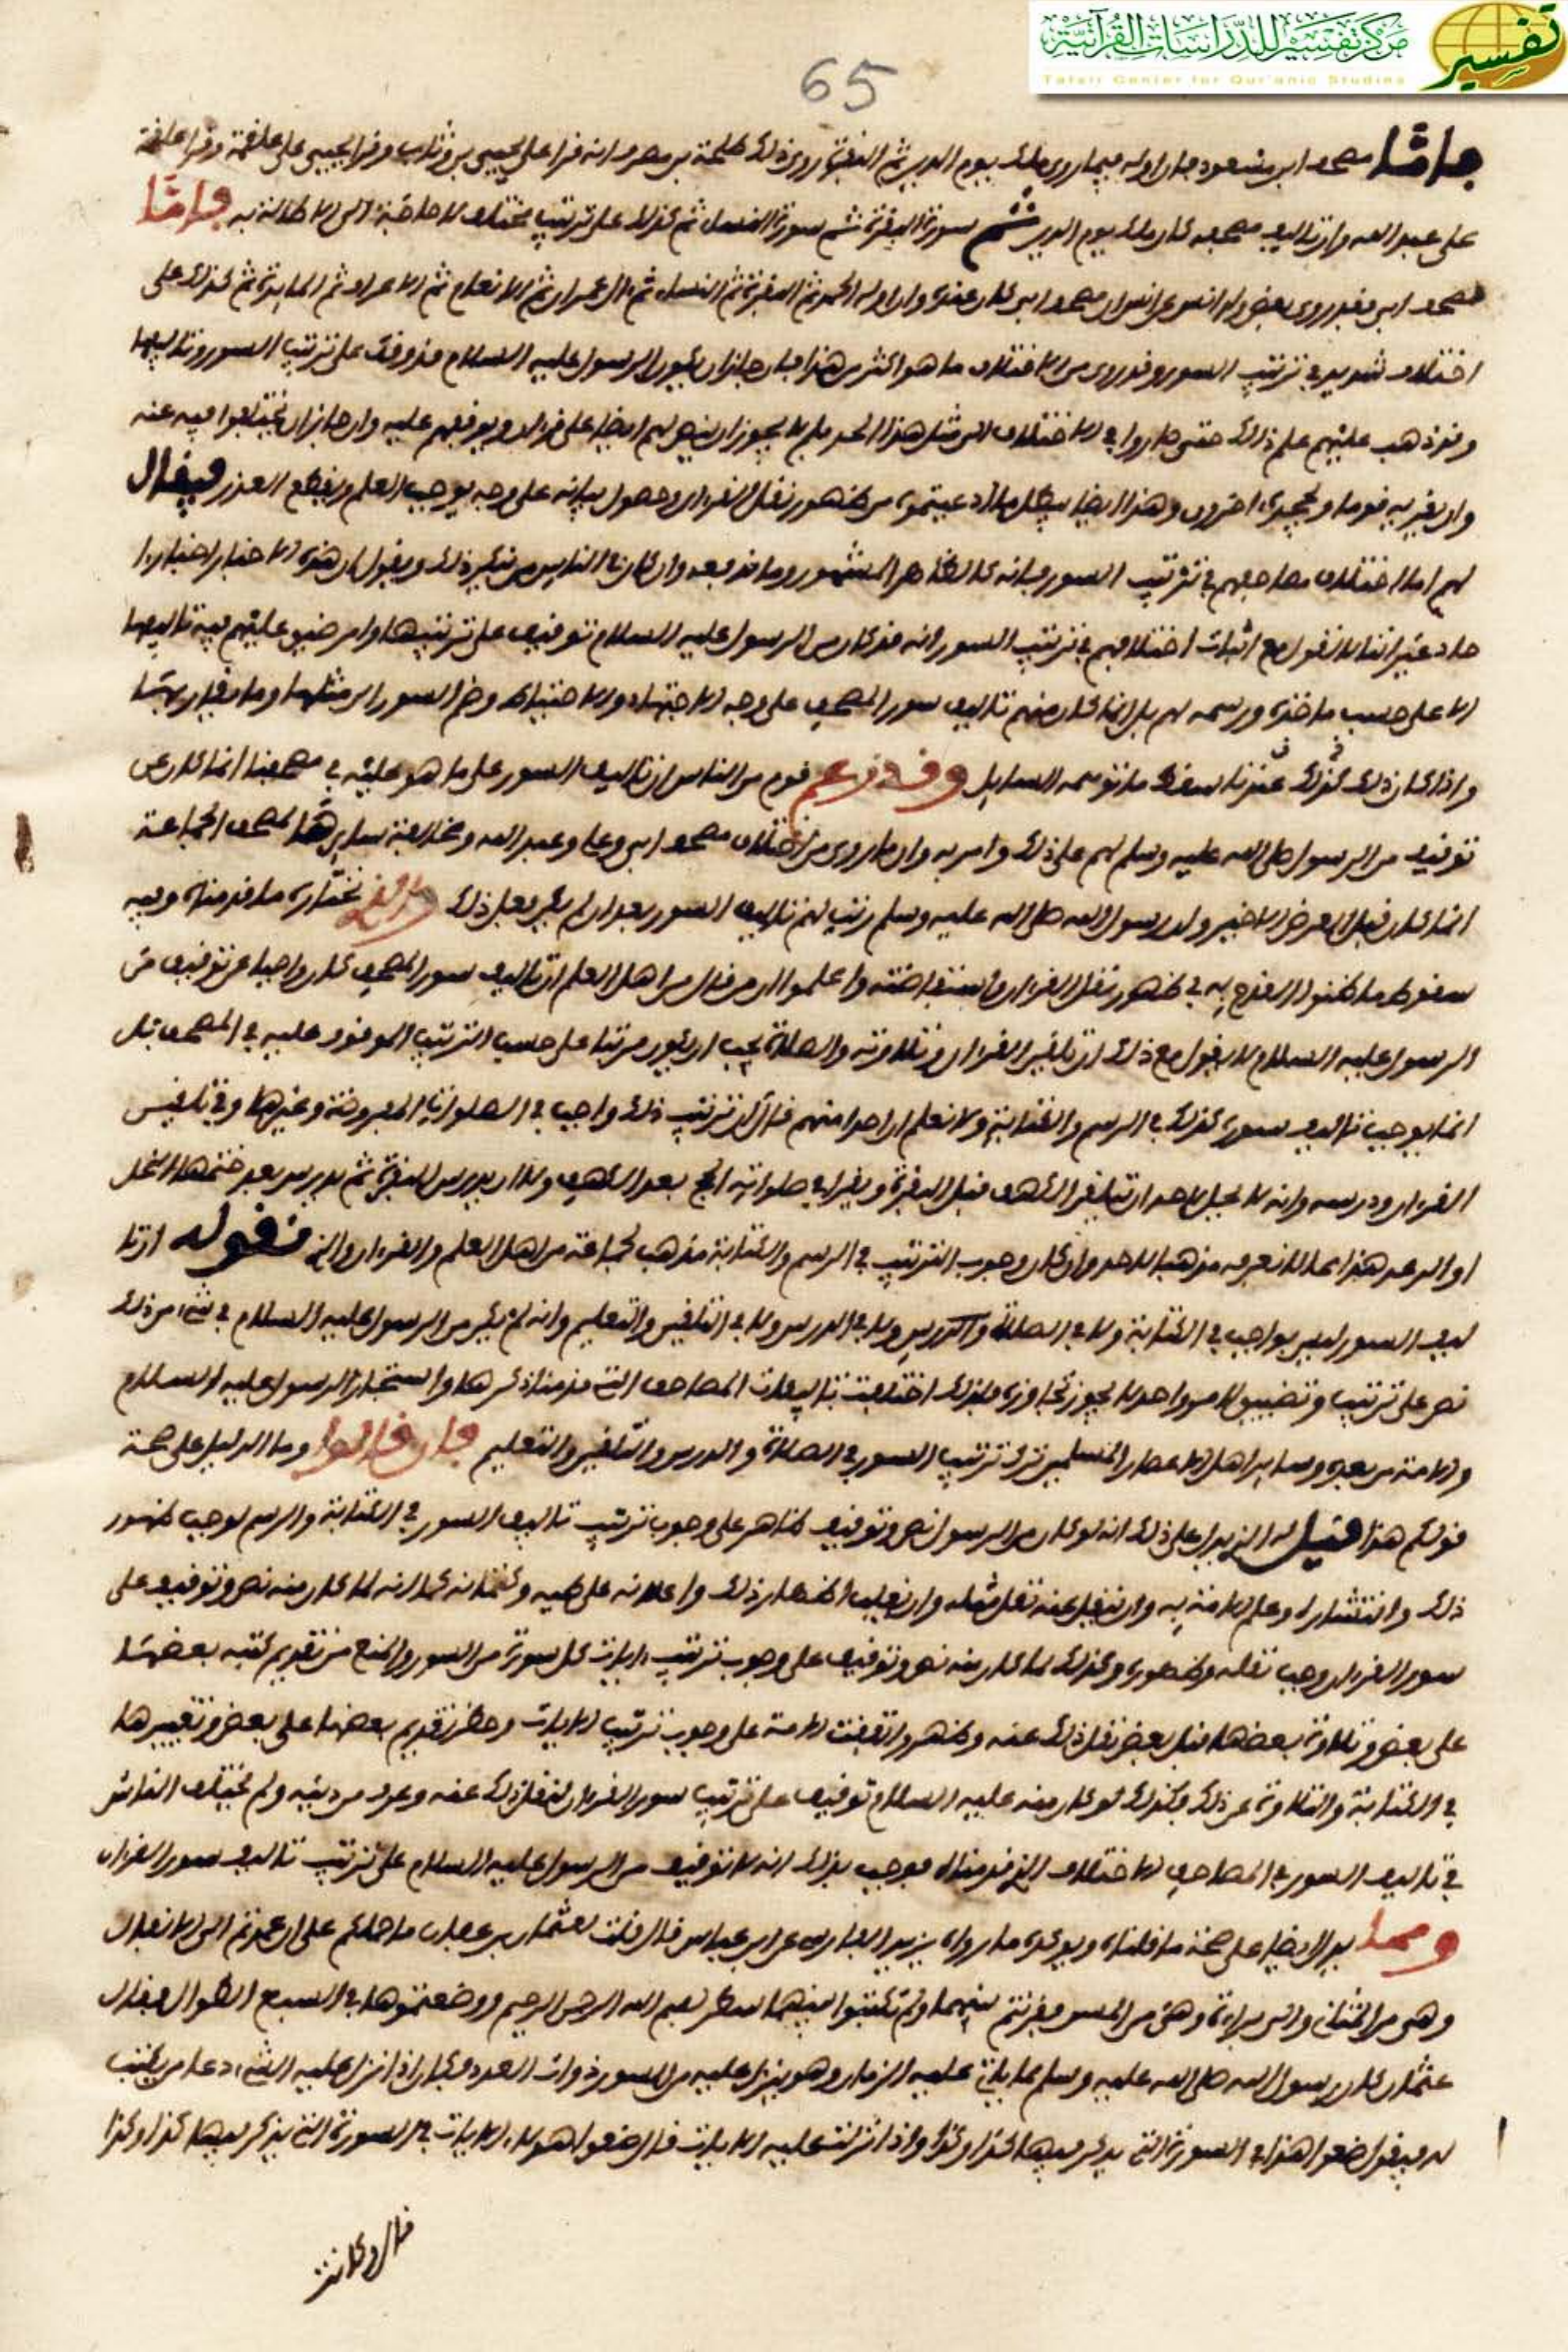 مركز تفسير للدراسات القرآنية
تفسير
Tafsir Center for Qur'anic Studies
65
فاما مصحف ابن مسعود فان اوله فيما روى ملك يوم الدين ثم البقرة روى ذلك طلحة بن مصرف انه قرا على يحيى بن وثاب وقرا يحيى على علقمة وقرا علقمة
على عبد الله وان تاليف مصحفه كان ملك يوم الدين ثم سورة البقرة ثم سورة النساء ثم كذلك على ترتيب مختلف لا حاجة الى الاطالة به فاما
مصحف ابي فقد روى بعض ولد انس عن انس ان مصحف ابي كان عنده وان اوله الحمد ثم البقرة ثم النساء ثم ال عمران ثم الانعام ثم الاعراف ثم المايدة ثم كذلك على
اختلاف شديد في ترتيب السور وقد روى من الاختلاف ما هو اكثر من هذا فان جاز ان يكون الرسول عليه السلام قد وقف على ترتيب السور وتاليفها
وقد ذهب عليهم علم ذلك حتى صاروا في الاختلاف الى مثل هذا الحد فلم لا يجوز ان ينص لهم ايضا على قران ويوقفهم عليه وان جاز ان يختلفوا فيه عنه
وان يقر به قوم ويجحده اخرون وهذا ايضا يبطل ما ادعيتموه من ظهور نقل القران وحصول بيانه على وجه يوجب العلم ويقطع العذر فيقال
لهم اما اختلاف مصاحفهم في ترتيب السور فانه كالظاهر المشهور وما ندفعه وان كان في الناس من ينكر ذلك ويقول ان هذه الاخبار اخبار
احاد غير اننا لا نقول مع اثبات اختلافهم في ترتيب السور انه قد كان من الرسول عليه السلام توقيف على ترتيبها وامر ضيق عليهم فيه تاليفها
الا على حسب ما حده ورسمه لهم بل انما كان منهم تاليف سور المصحف على وجه الاجتهاد والاحتياط وضم السور الى مثلها وما يقاربها
واذا كان ذلك كذلك عندنا سقط ما توهمه السايل وقد زعم قوم من الناس ان تاليف السور على ما هو عليه في مصحفنا انما كان عن
توقيف من الرسول صلى الله عليه وسلم لهم على ذلك وامر به وان ما روى من اختلاف مصحف ابي وعلي وعبد الله ومخالفة سايرها لمصحف الجماعة
انما كان قبل العرض الاخير وان رسول الله صلى الله عليه وسلم رتب لهم تاليف السور بعد ان لم يكن فعل ذلك والذي نختاره ما قدمناه وفيه
سقوط ما ظنوا القدح به في ظهور نقل القران واستفاضته واعلموا ان من قال من اهل العلم ان تاليف سور المصحف كان واجبا عن توقيف من
الرسول عليه السلام لا يقول مع ذلك ان تلقين القران وتلاوته والصلاة يجب ان يكون مرتبا على حسب الترتيب الموقوف عليه في المصحف بل
انما يوجب تاليف سوره كذلك في الرسم والكتابة ولا نعلم ان احدا منهم قال ان ترتيب ذلك واجب في الصلوات المفروضة وغيرها وفي تلقين
القران ودرسه وانه لا يحل لاحد ان يتلقن الكهف قبل البقرة ويقرا في صلواته الحج بعد الكهف ولا ان يدرس البقرة ثم يدرس بعد ختمها النحل
او الرعد هذا مما لا نعرفه مذهبا لاحد وان كان وجوب الترتيب في الرسم والكتابة مذهب لجماعة من اهل العلم والقران والذي نقوله ان تا
ليف السور ليس بواجب في الكتابة ولا في الصلاة ولا في الدرس ولا في التلقين والتعليم وانه لم يكن من الرسول عليه السلام في شيء من ذلك
نص على ترتيب وتضييق لامر واحد لا يجوز تجاوزه فلذلك اختلفت تاليفات المصاحف التي قدمنا ذكرها واستجاز الرسول عليه السلام
والامة من بعده وساير اهل اعصار المسلمين ترك ترتيب السور في الصلاة والدرس والتلقين والتعليم فان قالوا وما الدليل على صحة
قولكم هذا قيل له الذي يدل على ذلك انه لو كان من الرسول نص وتوقيف ظاهر على وجوب ترتيب تاليف السور في الكتابة والرسم لوجب ظهور
ذلك وانتشاره وعلم الامة به وان ينقل عنه نقل مثله وان يغلب اظهار ذلك واعلانه على طيه وكتمانه كما انه لما كان منه نص وتوقيف على
سور القران وجب نقله وظهوره وكذلك لما كان منه نص وتوقيف على وجوب ترتيب ايات كل سورة من السور والمنع من تقديم كتبه بعضها
على بعض وتلاوة بعضها قبل بعض نقل ذلك عنه وظهر واتفقت الامة على وجوب ترتيب الايات وحظر تقديم بعضها على بعض وتغييرها
في الكتابة والتلاوة عن ذلك فكذلك لو كان منه عليه السلام توقيف على ترتيب سور القران لنقل ذلك عنه وعرف من دينه ولم يختلف الناس
في تاليف السور في المصاحف الاختلاف الذي قدمناه فوجب بذلك انه لا توقيف من الرسول عليه السلام على ترتيب تاليف سور القران
ومما يدل ايضا على صحة ما قلناه ويوكده ما رواه يزيد الفارسي عن ابن عباس قال قلت لعثمان بن عفان ما حملكم على ان عمدتم الى الانفال
وهي من المثاني والى براءة وهي من المين فقرنتم بينهما ولم تكتبوا بينهما سطر بسم الله الرحمن الرحيم ووضعتموها في السبع الطوال فقال
عثمان كان رسول الله صلى الله عليه وسلم مما ياتي عليه الزمان وهو ينزل عليه من السور ذوات العدد فكان اذا نزل عليه الشيء دعا من يكتب
له فيقول ضعوا هذا في السورة التي يذكر فيها كذا وكذا واذا نزلت عليه الايات قال ضعوا هولاء الايات في السورة التي يذكر فيها كذا وكذا
قال وكانت